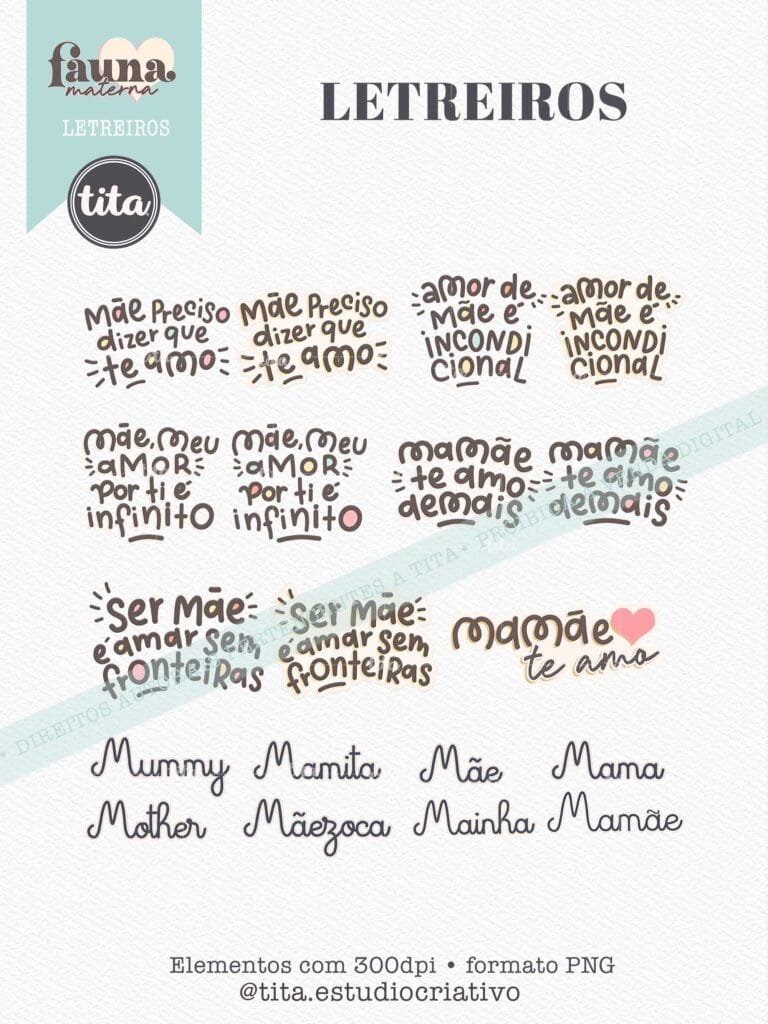 fauna
materna
LETREIROS
tita
LETREIROS
mãe preciso
dizer que
te amo
mãe preciso
dizer que
te amo
amor de
mãe é
incondi
cional
amor de
mãe é
incondi
cional
mãe, meu
amor
por ti é
infinito
mãe, meu
amor
por ti é
infinito
mamãe
te amo
demais
mamãe
te amo
demais
ser mãe
é amar sem
fronteiras
ser mãe
é amar sem
fronteiras
mamãe
te amo
Mummy Mamita Mãe Mama
Mother Mãezoca Mainha Mamãe
DIREITOS A TITA • DIGITAL
Elementos com 300dpi • formato PNG
@tita.estudiocriativo